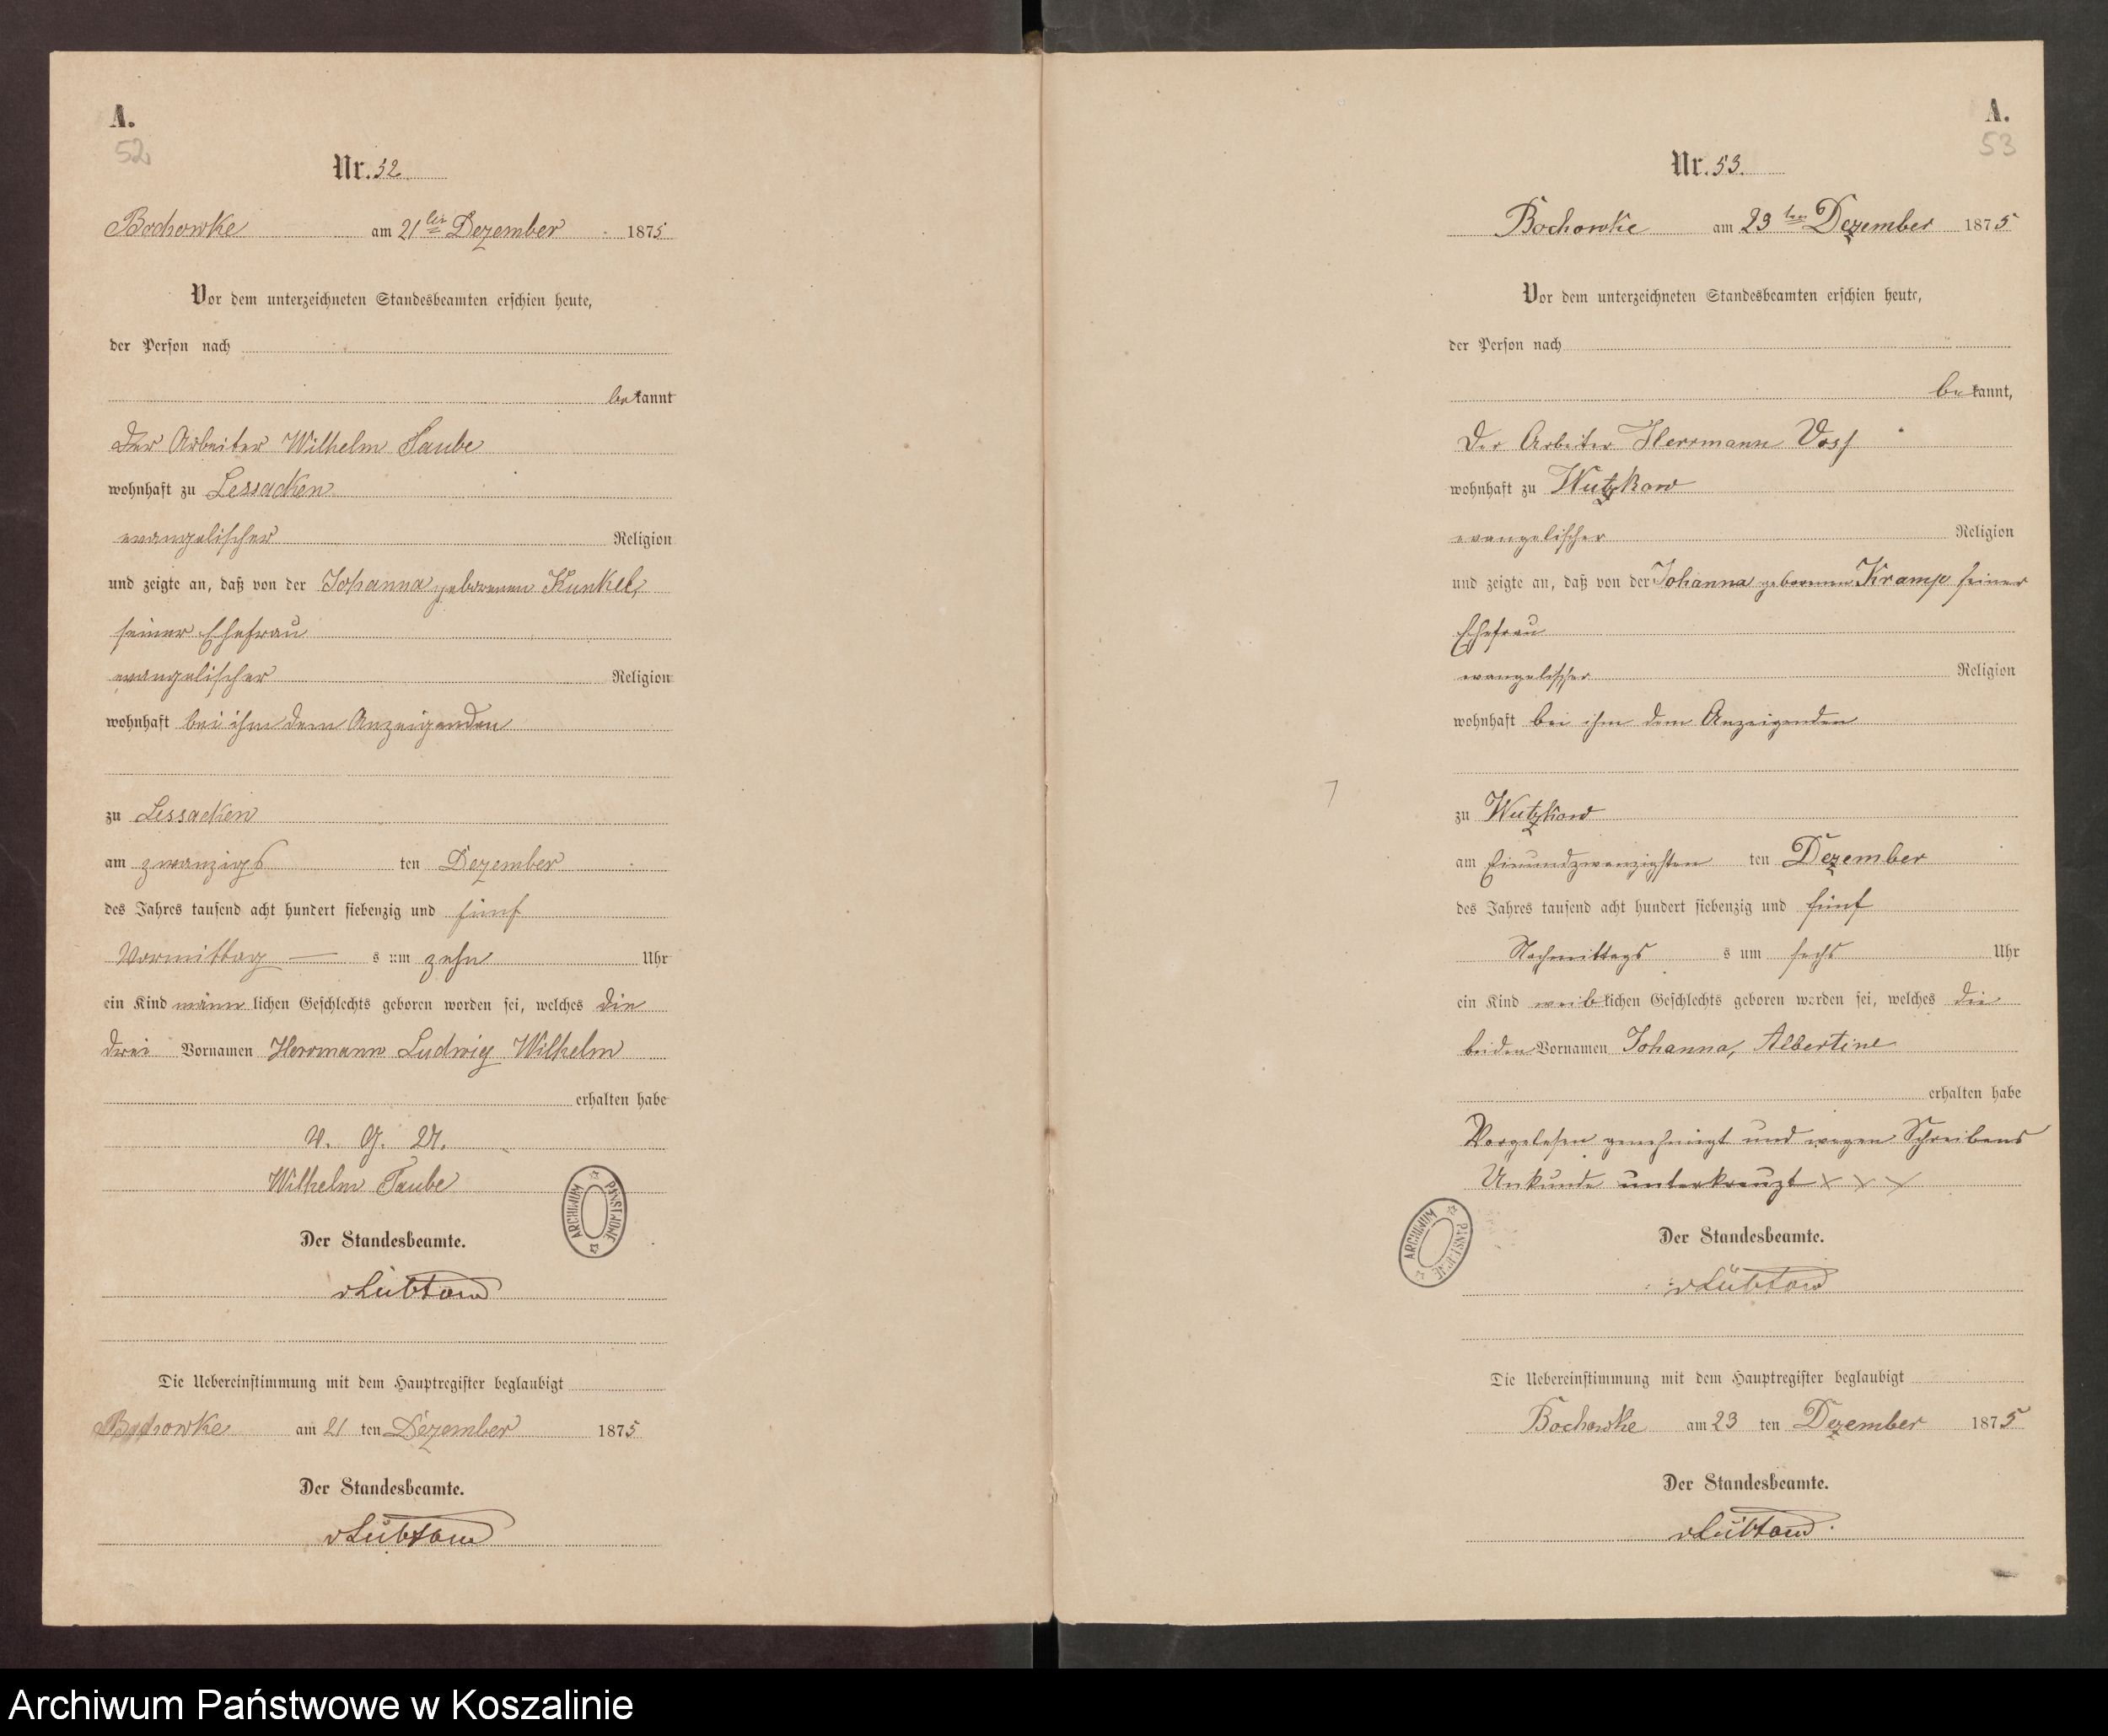 A.
52
Nr. 52.
Bochowke am 21ten Dezember 1875
Vor dem unterzeichneten Standesbeamten erschien heute,
der Person nach
bekannt
Der Arbeiter Wilhelm Taube
wohnhaft zu Lessacken
evangelischer Religion
und zeigte an, daß von der Johanna geborenen Kunkel,
seiner Ehefrau
evangelischer Religion
wohnhaft bei ihm dem Anzeigenden
zu Lessacken
am zwanzigs ten Dezember
des Jahres tausend acht hundert siebenzig und fünf
Vormittag — s um zehn Uhr
ein Kind männ lichen Geschlechts geboren worden sei, welches die
drei Vornamen Herrmann Ludwig Wilhelm
erhalten habe
V. G. U.
Wilhelm Taube
ARCHIWUM PAŃSTWOWE
Der Standesbeamte.
v Lübtow
Die Uebereinstimmung mit dem Hauptregister beglaubigt
Bochowke am 21 ten Dezember 1875
Der Standesbeamte.
v Lübtow
A.
53
Nr. 53.
Bochowke am 23ten Dezember 1875
Vor dem unterzeichneten Standesbeamten erschien heute,
der Person nach
bekannt,
Der Arbeiter Herrmann Voss
wohnhaft zu Wutzkow
evangelischer Religion
und zeigte an, daß von der Johanna geborenen Kramp seiner
Ehefrau
evangelischer Religion
wohnhaft bei ihm dem Anzeigenden
zu Wutzkow
am Einundzwanzigsten ten Dezember
des Jahres tausend acht hundert siebenzig und fünf
Nachmittags s um sechs Uhr
ein Kind weib lichen Geschlechts geboren worden sei, welches die
beiden Vornamen Johanna, Albertine
erhalten habe
Vorgelesen genehmigt und wegen Schreibens
Unkunde unterkreuzt × × ×
ARCHIWUM PAŃSTWOWE
Der Standesbeamte.
v Lübtow
Die Uebereinstimmung mit dem Hauptregister beglaubigt
Bochowke am 23 ten Dezember 1875
Der Standesbeamte.
v Lübtow.
Archiwum Państwowe w Koszalinie